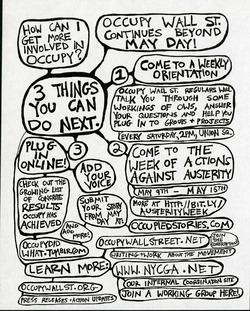 HOW CAN I
GET MORE
INVOLVED IN
OCCUPY?
OCCUPY WALL ST.
CONTINUES BEYOND
MAY DAY!
3 THINGS
YOU CAN
DO NEXT.
1
COME TO A WEEKLY
ORIENTATION
OCCUPY WALL ST. REGULARS WILL
TALK YOU THROUGH SOME
WORKINGS OF OWS, ANSWER
YOUR QUESTIONS AND HELP YOU
PLUG IN TO GROUPS + PROJECTS.
EVERY SATURDAY, 2PM, UNION SQ.
2
COME TO THE
WEEK OF ACTIONS
AGAINST AUSTERITY
MAY 9TH - MAY 15TH
MORE AT HTTP://BIT.LY/
AUSTERITYWEEK
3
ADD
YOUR
VOICE
SUBMIT
YOUR STORY
FROM MAY
DAY AT:
OCCUPIEDSTORIES.COM
PLUG
IN
ONLINE!
CHECK OUT THE
GROWING LIST
OF
CONCRETE
RESULTS
OCCUPY HAS
ACHIEVED
AND ADD
MORE!
OCCUPYDID
WHAT.TUMBLR.COM
LEARN MORE:
OCCUPYWALLST.ORG
PRESS RELEASES + ACTION UPDATES
OCCUPYWALLSTREET.NET
JOIN THE
CONVERSATION
WRITING ABOUT THE MOVEMENT
WWW.NYCGA.NET
OUR INTERNAL COORDINATION SITE
JOIN A WORKING GROUP HERE!